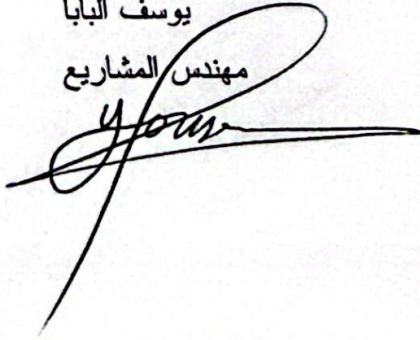 يوسف البابا
مهندس المشاريع